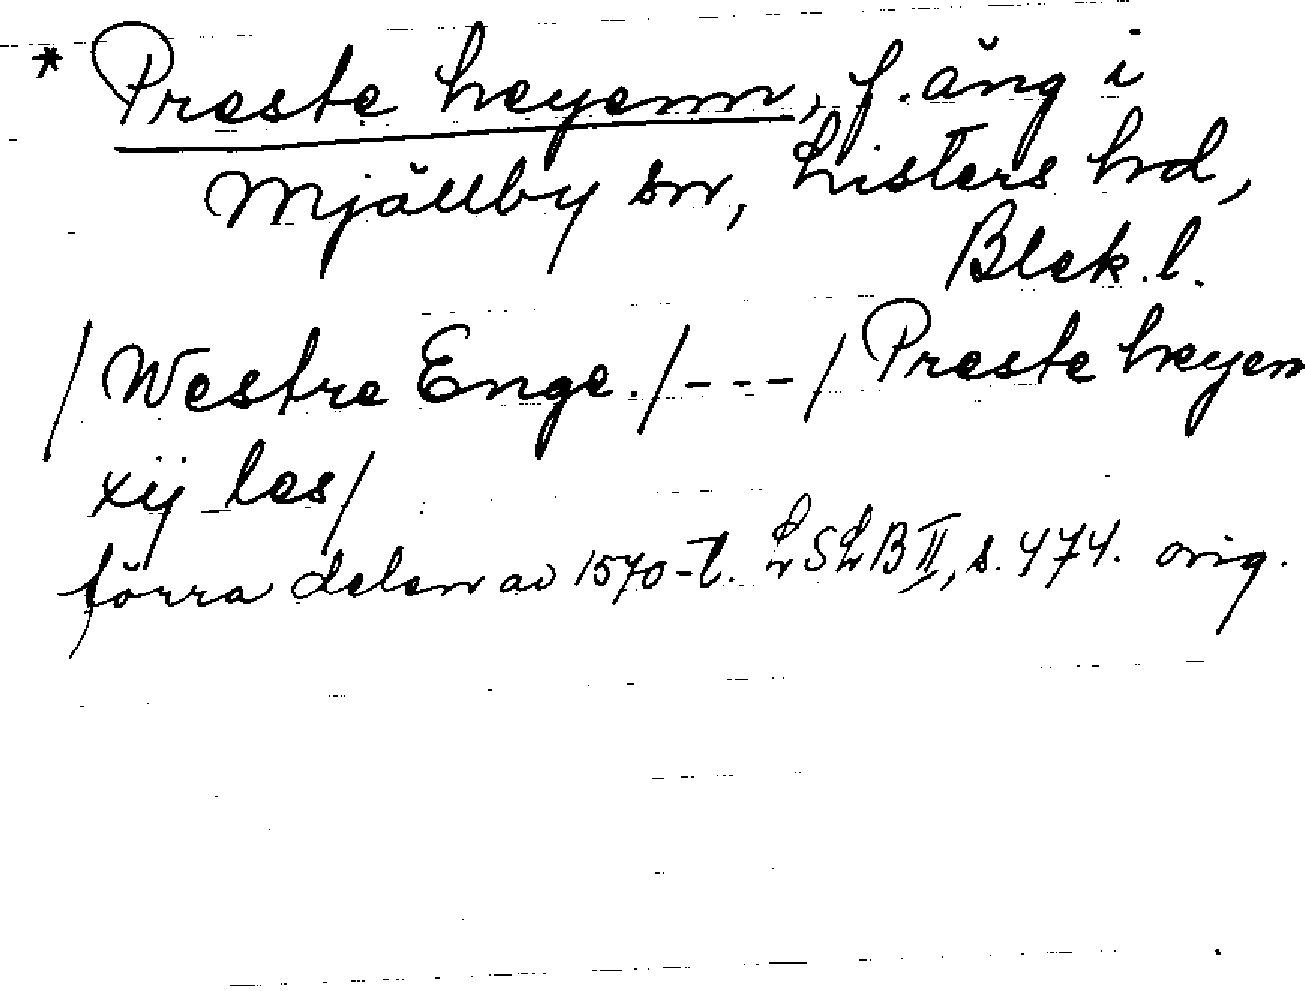 * Preste heyenn, f. äng i
Mjällby sn, Listers hd,
Blek. l.
/Westre Enge./---/Preste heyen
xij les/
förra delen av 1570-t. LSLB II, s. 474. orig.